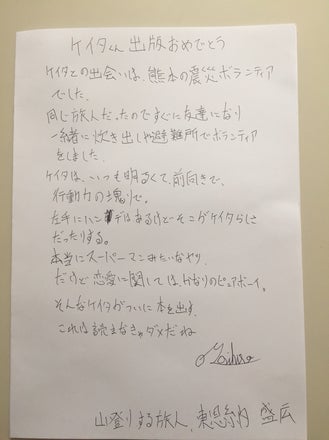 ケイタくん 出版おめでとう
ケイタとの出会いは、熊本の震災ボランティア
でした.
同じ旅人だったのですぐに友達になり
一緒に炊き出しや避難所でボランティア
をしました.
ケイタは、いつも明るくて、前向きで、
行動力の塊りで。
左手にハンデはあるけどそこがケイタらしさ
だったりする。
本当にスーパーマンみたいなヤツ.
だけど恋愛に関しては、かなりのピュアボーイ。
そんなケイタがついに本を出す.
これは読まなきゃダメだね
山登りする旅人、東恩納 盛広